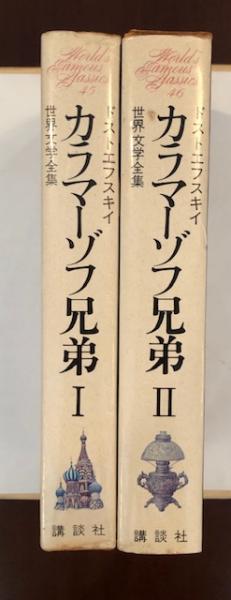 World's
Famous
Classics
45
ドストエフスキイ
世界文学全集
カラマーゾフ兄弟 I
講談社
World's
Famous
Classics
46
ドストエフスキイ
世界文学全集
カラマーゾフ兄弟 II
講談社